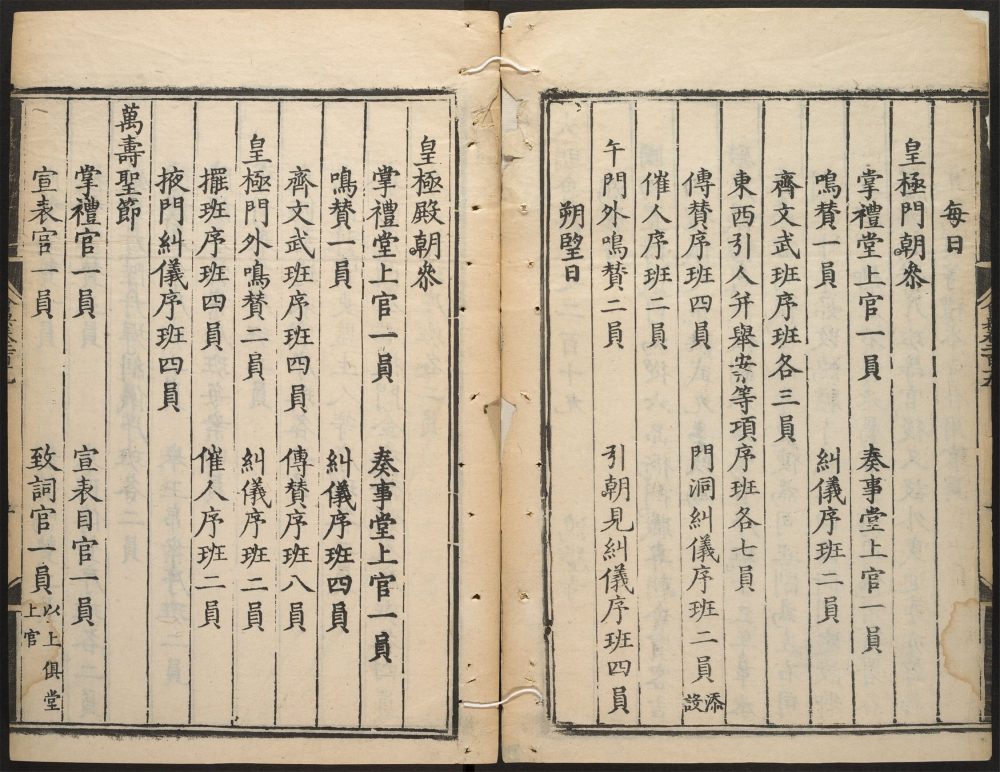 每日
皇極門朝叅
掌禮堂上官一員 奏事堂上官一員
鳴贊一員 糾儀序班二員
齊文武班序班各三員
東西引人并舉案等項序班各七員
傳贊序班四員 門洞糾儀序班二員 添設
催人序班二員
午門外鳴贊二員 引朝見糾儀序班四員
朔望日
皇極殿朝叅
掌禮堂上官一員 奏事堂上官一員
鳴贊一員 糾儀序班四員
齊文武班序班四員 傳贊序班八員
皇極門外鳴贊二員 糾儀序班二員
擺班序班四員 催人序班二員
掖門糾儀序班四員
萬壽聖節
掌禮官一員 宣表目官一員
宣表官一員 致詞官一員 以上俱堂上官